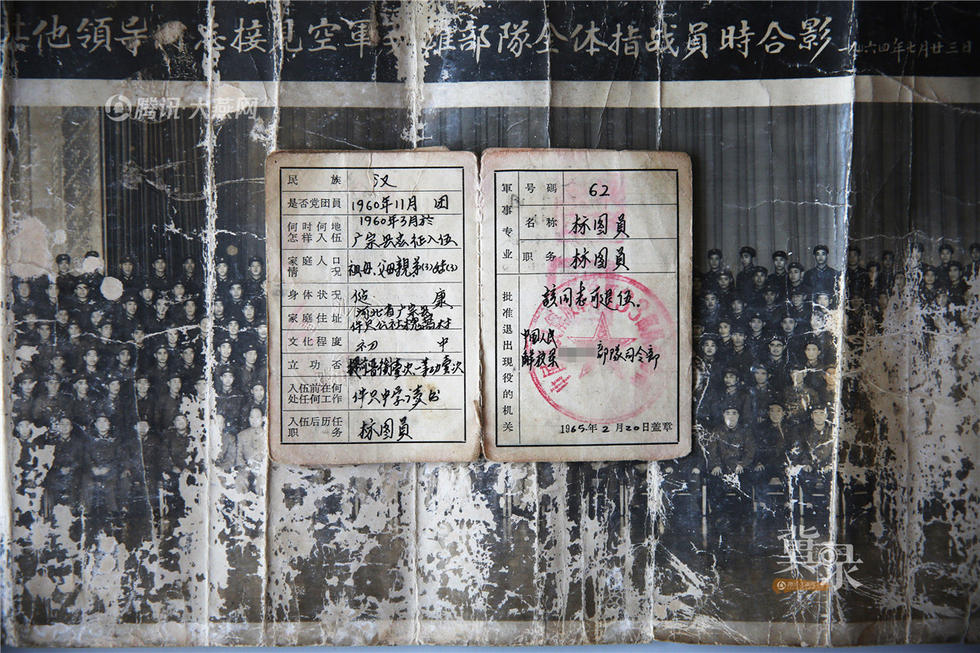 他領导同志接見空軍英雄部隊全体指战員時合影 一九六四年七月廿三日
腾讯·大燕网
民族 汉
是否党团員 1960年11月 团
何时何地怎样入伍 1960年3月於广宗县应征入伍
家庭人口情况 祖母.父母親弟(3)妹(3)
身体状况 健康
家庭住址 河北省广宗县件只公社槐窩村
文化程度 初中
立功否
入伍前在何处任何工作 件只中学读书
入伍后历任职务 标图員
軍事专业
号碼 62
名称 标图員
职务 标图員
批准退出現役的机关
該同志可退伍.
中国人民解放军 部隊司令部
1965年2月20日盖章
冀录